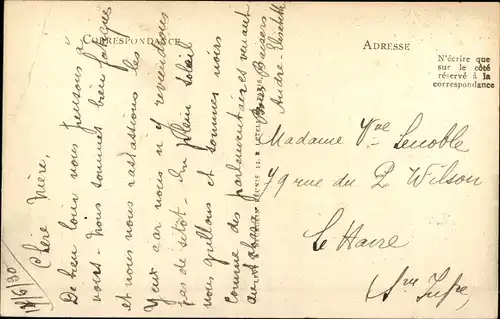 CORRESPONDANCE
ADRESSE
N'écrire que
sur le côté
réservé à la
correspondance
12/6/30
Chère Mère,
De bien loin nous pensons à
vous. Nous sommes bien fatigués
et nous nous rassasions les
Yeux car nous n'y reviendrons
pas de sitôt. En plein soleil
nous grillons et sommes noirs
comme des parlementaires venant
Bons Baisers
André-Elisabeth
Madame Vve Lenoble
79 rue du P Wilson
Le Havre
Sne Infre